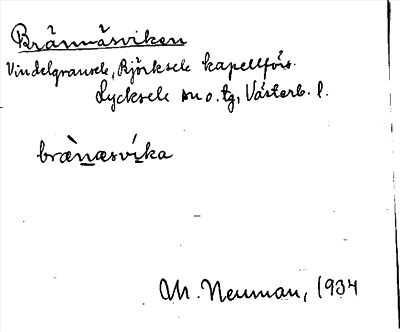 Brännäsviken
Vindelgransele, Björksele kapellförs.
Lycksele sn o. tg, Västerb. l.
brænæsvíka
Th. Neuman, 1934